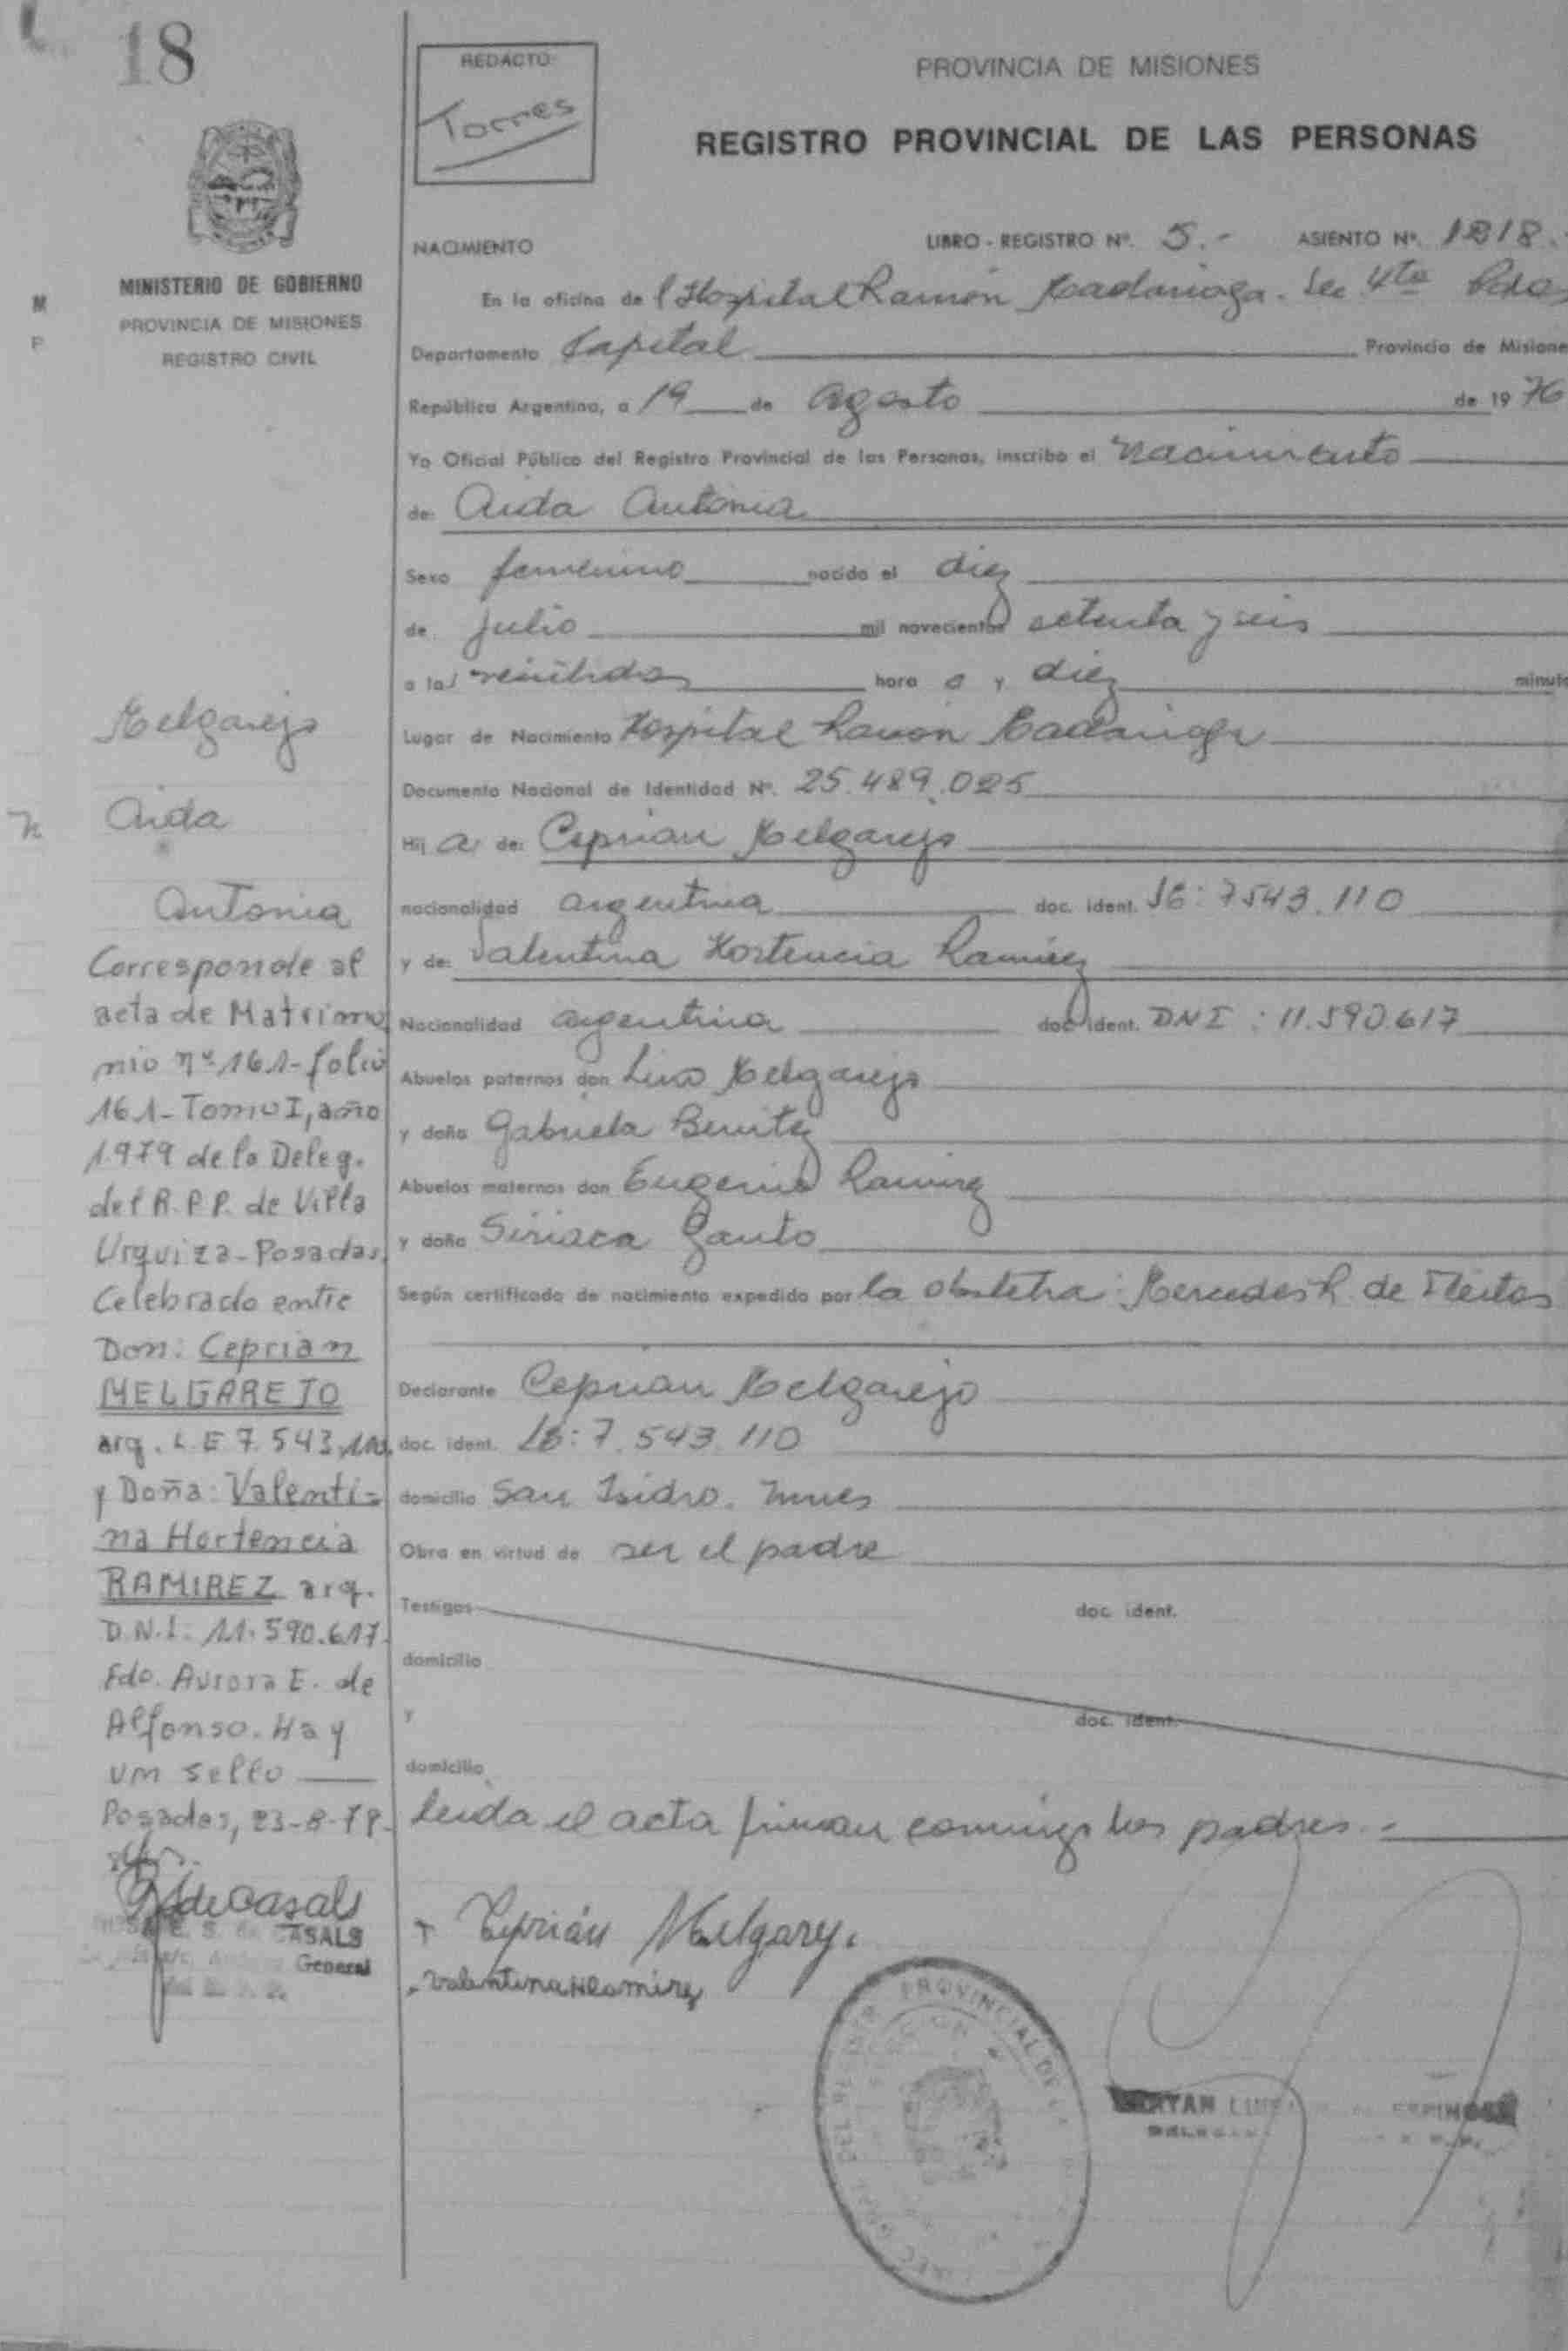 18
REDACTO:
Torres
PROVINCIA DE MISIONES
REGISTRO PROVINCIAL DE LAS PERSONAS
MINISTERIO DE GOBIERNO
PROVINCIA DE MISIONES
REGISTRO CIVIL
M
P
NACIMIENTO
LIBRO - REGISTRO Nº. 5.- ASIENTO Nº. 1218.-
En la oficina de l Hospital Ramón Madariaga. Sec 4ta Pdas
Departamento Capital Provincia de Misione
República Argentina, a 19 de agosto de 1976
Yo Oficial Público del Registro Provincial de las Personas, inscribo el nacimiento
de: Aida Antonia
Sexo femenino nacido el diez
de julio mil novecientos setenta y seis
a las veintidos hora s y diez minuto
Lugar de Nacimiento Hospital Ramón Madariaga
Documento Nacional de Identidad Nº. 25.489.025
Hij a de: Ceprian Melgarejo
nacionalidad argentina doc. ident. LE: 7543.110
y de: Valentina Hortencia Ramirez
Nacionalidad argentina doc. ident. DNI : 11.590.617
Abuelos paternos don Lino Melgarejo
y doña Gabriela Benitez
Abuelos maternos don Eugenio Ramirez
y doña Siriaca Gauto
Según certificado de nacimiento expedido por la obstetra: Mercedes R. de Fleitas
Declarante Ceprian Melgarejo
doc. ident. LE: 7.543.110
domicilio San Isidro. Mnes
Obra en virtud de ser el padre
Testigos doc. ident.
domicilio
y doc. ident.
domicilio
leida el acta firman conmigo los padres.-
Ciprián Melgarejo
Valentina H Ramirez
Melgarejo
Aida
Antonia
Corresponde al
acta de Matrimo
nio nº 161-folio
161-Tomo I, año
1979 de la Deleg.
del R.P.P. de Villa
Urquiza-Posadas,
Celebrado entre
Don: Ceprian
MELGAREJO
arg. L.E 7.543.110,
y Doña: Valenti-
na Hortencia
RAMIREZ arg.
D.N.I: 11.590.617.
Fdo. Aurora E. de
Alfonso. Hay
un sello
Posadas, 23-8-79.
de Casals
E. S. de CASALS
General
PROVINCIAL DE
ESPINOSA